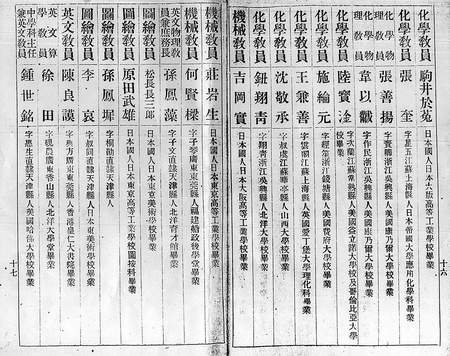 駒井於菟 日本國人日本大阪高等工業學校畢業
化學教員 張奎 字星五江蘇上海縣人日本帝國大學應用化學科畢業
化學物理教員 張善揚 浙江吳興縣人美國康乃爾大學校畢業
化學物理教員 韋以黻 字作民浙江吳興縣人美國康乃爾大學校畢業
化學教員 陸寶淦 字次蘭江蘇常熟縣人美國益立諾大學校及哥倫比亞大學
校畢業
化學教員 施綸元 浙江錢塘縣人美國費府大學校畢業
化學教員 王兼善 字雲閣江蘇上海縣人英國愛丁堡大學理化科畢業
化學教員 沈敬承 字叔虞江蘇華亭縣人山西大學校畢業
化學教員 鈕翔青 字翔青浙江吳興縣人北洋大學校畢業
機械教員 吉岡實 日本國人日本大阪高等工業學校畢業
十六
機械教員 莊岩生 日本國人日本東京高等工業學校畢業
機械教員 何賢樑 字子學廣東東莞縣人福建船政後學堂畢業
英文物理教員兼庶務長 孫鳳藻 字子文直隸天津縣人北洋育才館畢業
圖繪教員 松長長三郎 日本國人日本東京美術學校畢業
圖繪教員 原田武雄 日本國人日本東京高等工業學校圖按科畢業
圖繪教員 孫鳳墀 直隸天津縣人
圖繪教員 李哀 字叔同直隸天津縣人日本東京美術學校畢業
英文教員 陳良謨 廣東東莞縣人香港皇仁大書院畢業
英文算學教員 徐田 廣東香山縣人北洋大學堂畢業
中學科主任兼英文教員 鍾世銘 字蕙生直隸天津縣人美國哈佛大學校畢業
十七